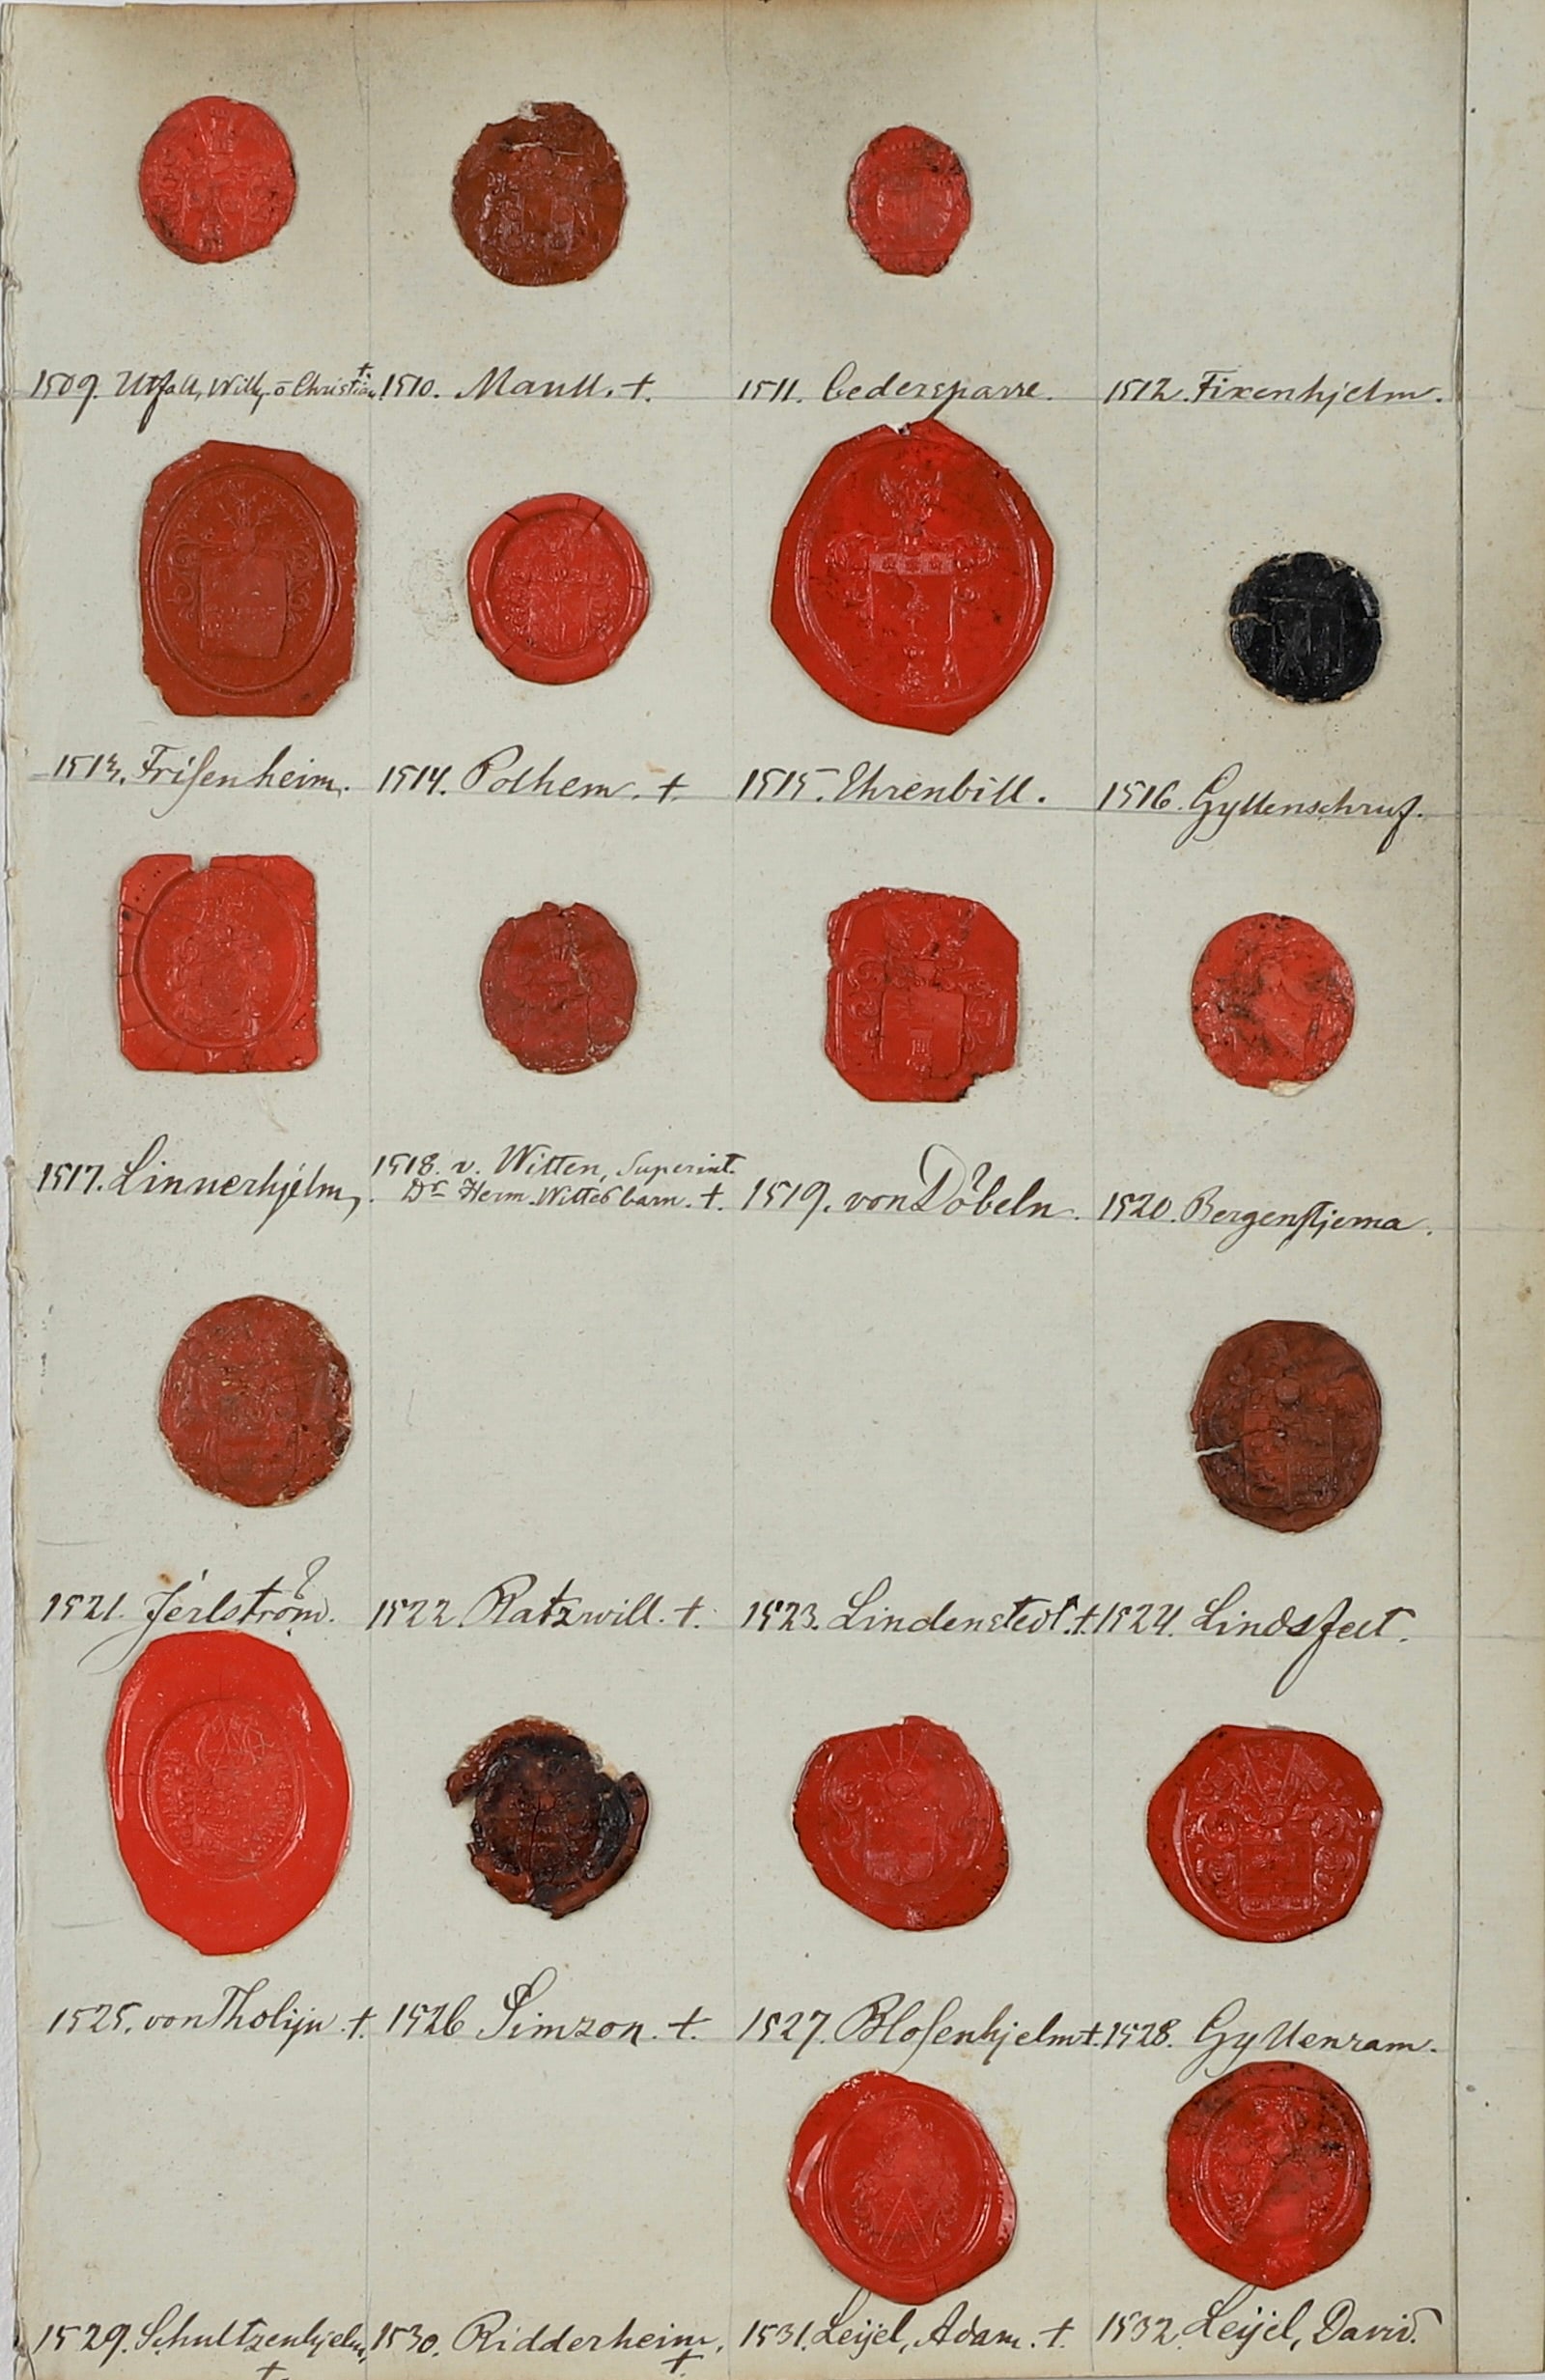 1509. Utfall, Will, o Christian. †
1510. Maull. †.
1511. Cedersparre.
1512. Fixenhjelm.
1513. Frisenheim.
1514. Polhem. †.
1515. Ehrenbill.
1516. Gyllenschruf.
1517. Linnerhjelm,.
1518. v. Witten, Superint.
Dr Herm. Wittes barn. †.
1519. von Döbeln.
1520. Bergenstjerna.
1521. Jerlström.
1522. Ratzwill. †.
1523. Lindenstedt. †.
1524. Lindsfelt.
1525. von Tholijn. †.
1526 Simzon. †.
1527. Blosenhjelm †.
1528. Gyllenram.
1529. Schultzenhjelm, †.
1530. Ridderheim, †.
1531. Leijel, Adam. †.
1532. Leijel, David.